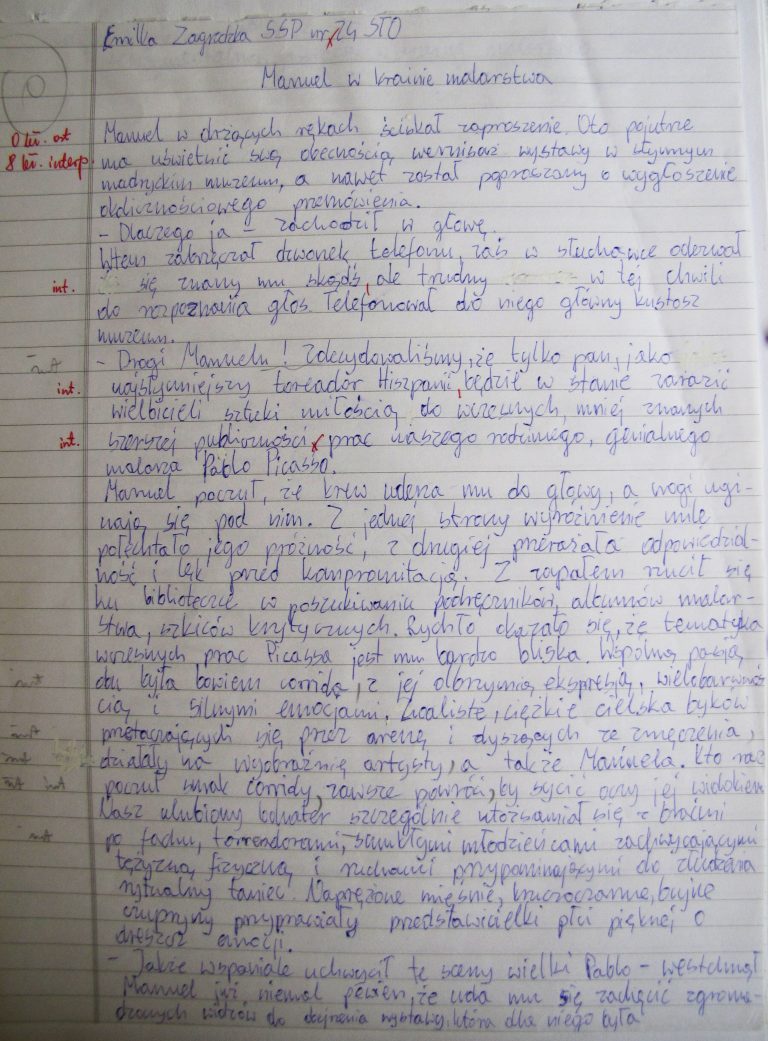 Emilka Zagrodzka SSP nr 24 STO
Manuel w krainie malarstwa
0 bł. ort
8 bł. interp.
Manuel w drżących rękach ściskał zaproszenie. Oto pojutrze
ma uświetnić swą obecnością wernisaż wystawy w słynnym
madryckim muzeum, a nawet został poproszony o wygłoszenie
okolicznościowego przemówienia.
- Dlaczego ja - zachodził w głowę.
Wtem zabrzęczał dzwonek telefonu, zaś w słuchawce odezwał
int. się znany mu skądś, ale trudny w tej chwili
do rozpoznania głos. Telefonował do niego główny kustosz
muzeum.
- Drogi Manuelu! Zdecydowaliśmy, że tylko pan, jako
int. najsłynniejszy toreador Hiszpanii, będzie w stanie zarazić
wielbicieli sztuki miłością do wczesnych, mniej znanych
int. szerszej publiczności prac naszego rodzimego, genialnego
malarza Pablo Picasso.
Manuel poczuł, że krew uderza mu do głowy, a nogi ugi-
nają się pod nim. Z jednej strony wyróżnienie mile
połechtało jego próżność, z drugiej przerażała odpowiedzial-
ność i lęk przed kompromitacją. Z zapałem rzucił się
ku biblioteczce w poszukiwaniu podręczników, albumów malar-
stwa, szkiców krytycznych. Rychło okazało się, że tematyka
wczesnych prac Picassa jest mu bardzo bliska. Wspólną pasją
obu była bowiem corrida, z jej olbrzymią ekspresją, wielobarwnoś
cią i silnymi emocjami. Zwaliste, ciężkie cielska byków
przetaczających się przez arenę i dyszących ze zmęczenia,
działały na wyobraźnię artysty, a także Manuela. Kto raz
int int poczuł smak corridy, zawsze powróci, by sycić oczy jej widokiem
Nasz ulubiony bohater szczególnie utożsamiał się z braćmi
po fachu, torreadorami, smukłymi młodzieńcami zachwycającymi
tężyzną fizyczną i ruchami przypominającymi do złudzenia
rytualny taniec. Naprężone mięśnie, kruczoczarne, bujne
czupryny przyprawiały przedstawicielki płci pięknej o
dreszcz emocji.
- Jakże wspaniale uchwycił te sceny wielki Pablo - westchnął
Manuel już niemal pewien, że uda mu się zachęcić zgroma-
dzonych widzów do obejrzenia wystawy, która dla niego była